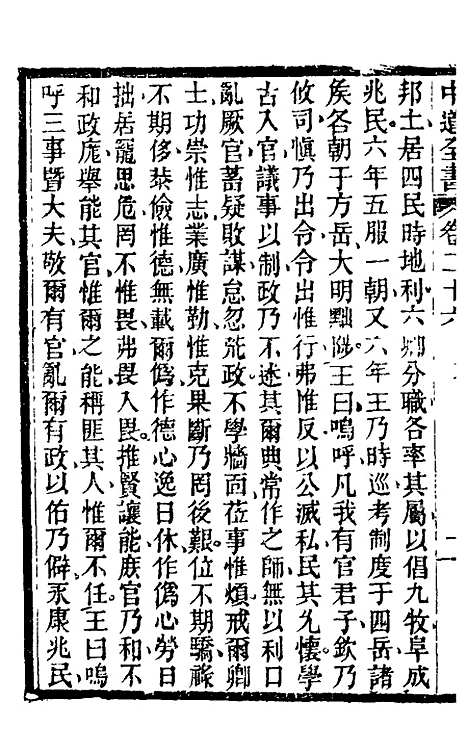 中道全書 卷二十六 二
邦土居四民時地利六卿分職各率其屬以倡九牧阜成
兆民六年五服一朝又六年王乃時巡考制度于四岳諸
矦各朝于方岳大明黜陟王曰嗚呼凡我有官君子欽乃
攸司愼乃出令令出惟行弗惟反以公滅私民其允懷學
古入官議事以制政乃不迷其爾典常作之師無以利口
亂厥官蓄疑敗謀怠忽荒政不學牆面莅事惟煩戒爾卿
士功崇惟志業廣惟勤惟克果斷乃罔後艱位不期驕祿
不期侈恭儉惟德無載爾僞作德心逸日休作僞心勞日
拙居寵思危罔不惟畏弗畏入畏推賢讓能庶官乃和不
和政庞舉能其官惟爾之能稱匪其人惟爾不任王曰嗚
呼三事曁大夫敬爾有官亂爾有政以佑乃辟永康兆民